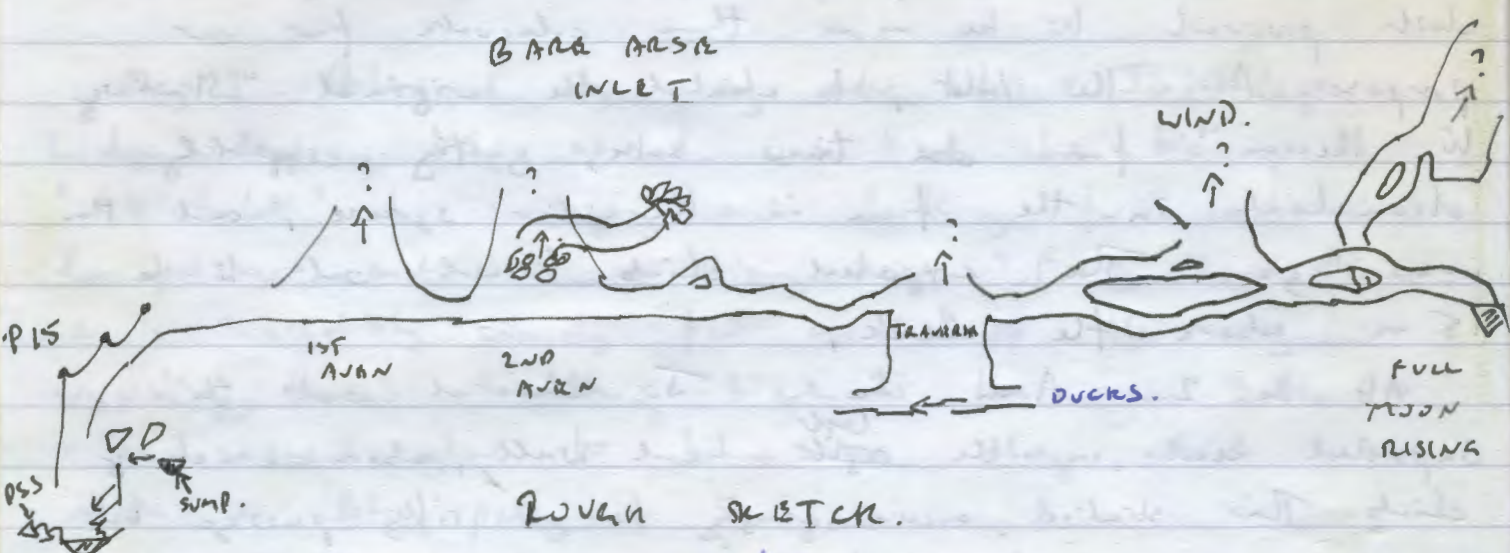 BARE ARSE
INLET
?
WIND.
?
?
?
?
P15
1ST
AVEN
2ND
AVEN
TRAVERSE
DUCKS.
FULL
MOON
RISING
PSS
SUMP.
ROUGH SKETCH.